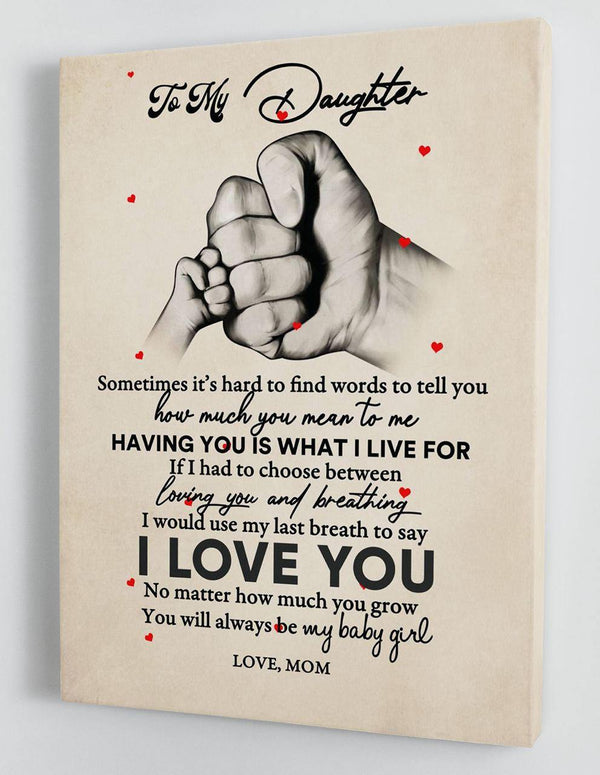 To My Daughter
Sometimes it's hard to find words to tell you
how much you mean to me
HAVING YOU IS WHAT I LIVE FOR
If I had to choose between
loving you and breathing
I would use my last breath to say
I LOVE YOU
No matter how much you grow
You will always be my baby girl
LOVE, MOM